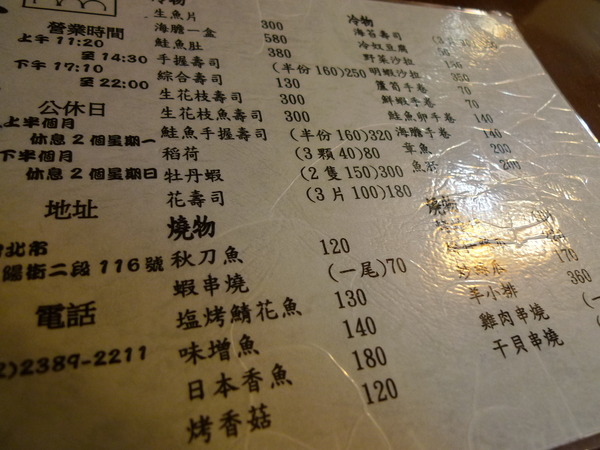 營業時間
上午11:20
至14:30
下午17:10
至22:00
公休日
上半個月
休息2個星期一
下半個月
休息2個星期日
地址
北市
陽街二段116號
電話
2)2389-2211
冷物
生魚片 300
海膽一盒 580
鮭魚肚 380
手握壽司 (半份160)250
綜合壽司 130
生花枝壽司 300
生花枝魚壽司 300
鮭魚手握壽司 (半份160)320
稻荷 (3顆40)80
牡丹蝦 (2隻150)300
花壽司 (3片100)180
燒物
秋刀魚 120
蝦串燒 (一尾)70
塩烤鯖花魚 130
味增魚 140
日本香魚 180
烤香菇 120
冷物
海苔壽司
冷奴豆腐
野菜沙拉
明蝦沙拉 350
蘆筍手卷 70
鮮蝦手卷 70
鮭魚卵手卷 140
海膽手卷 140
章魚 200
魚 200
燒物
170
羊小排 360
雞肉串燒
干貝串燒